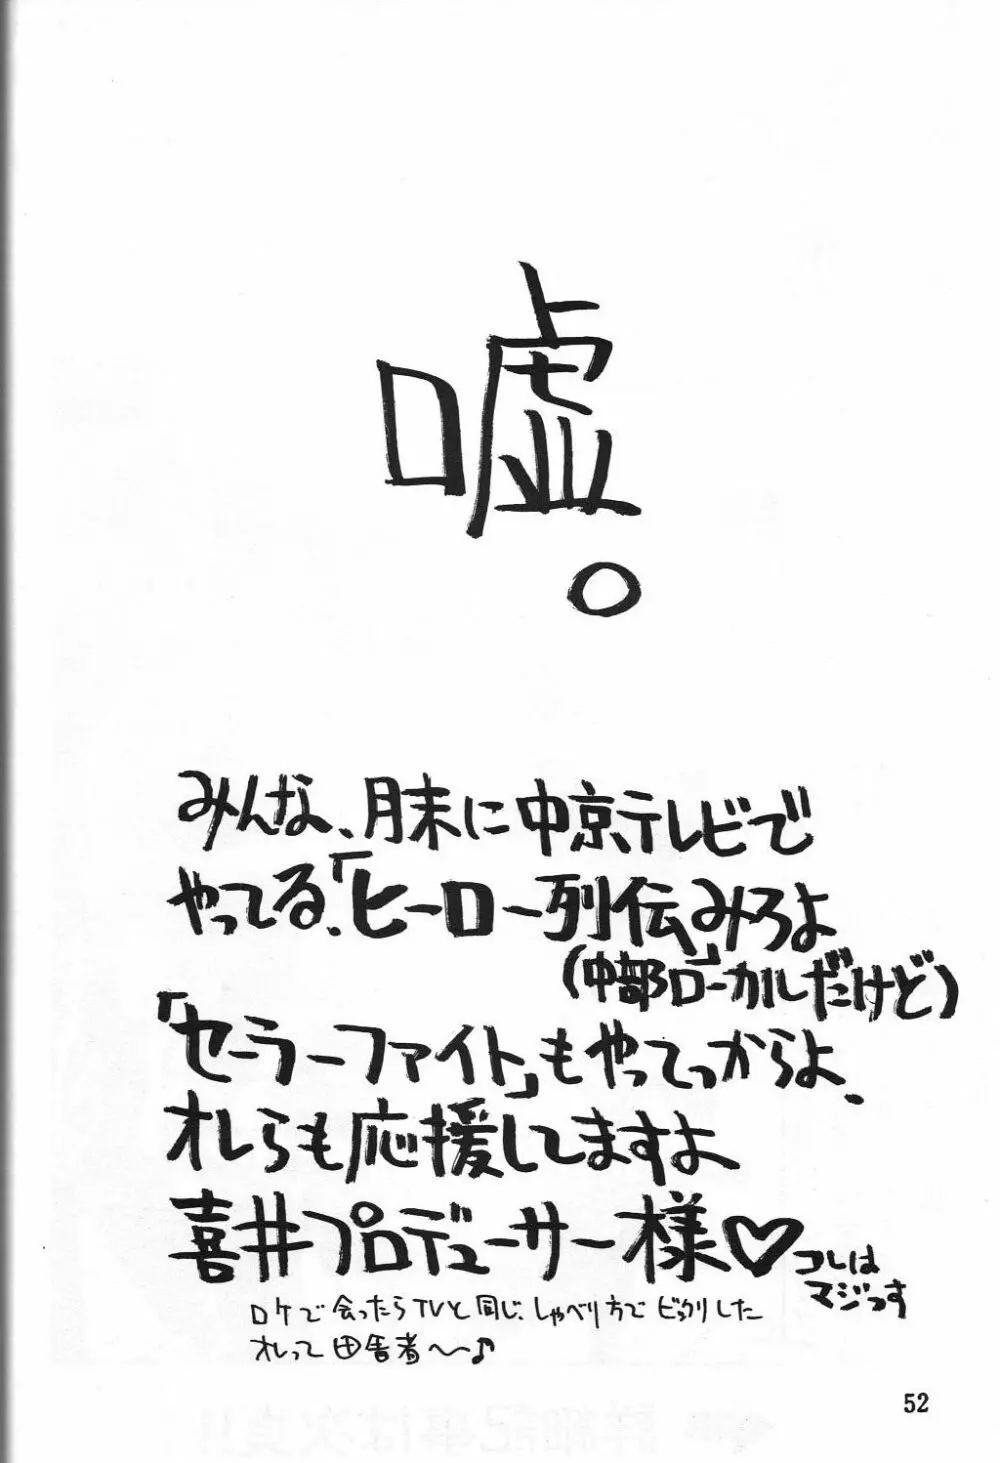 嘘。
みんな、月末に中京テレビで
やってる、「ヒーロー列伝」みろよ
(中部ローカルだけど)
「セーラーファイト」もやってっからよ、
オレらも応援してますよ
喜井プロデューサー様♡
コレは
マジっす
ロケで会ったらTVと同じ、しゃべり方でビックリした
オレって田舎者〜〜♪
52
詳細記事は次頁!!